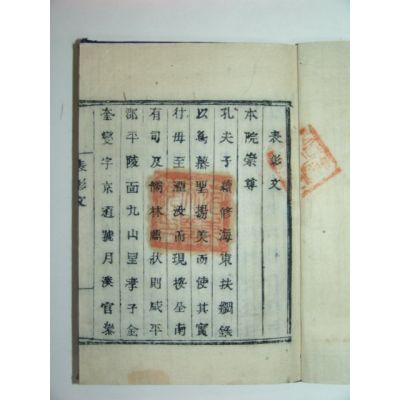 表彰文
本院崇尊
孔夫子續修海東扶綱錄
以爲聖揚美而使其實
行毋至湮沒而現接全南
有司及儒林薦狀則咸平
郡平陵面九山里孝子金
奎燮字京道號月溪官參
表彰文